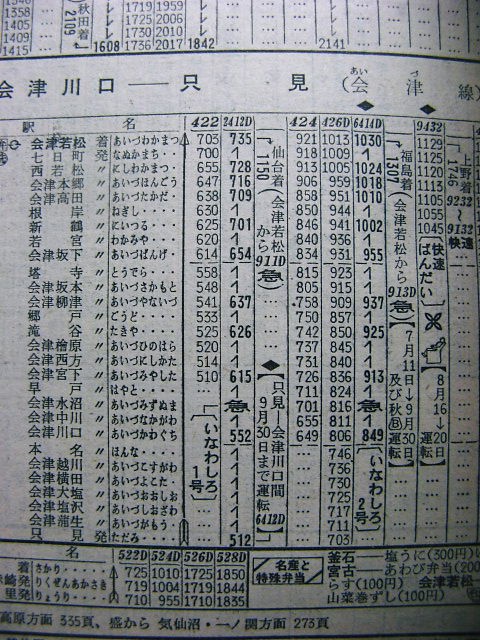 1358
1405
1409
1415
秋田着
2109
1608
1719 1959
1725 2006
1730 2010
1736 2017 1842
2141
会津川口――只見(会津線)
あい づ
駅 名 422 2412D 424 426D 6414D 9432
会津若松 着 あいづわかまつ 703 735 921 1013 1030 1129
七日町 発 なぬかまち‥ 700 918 1009 1125
西若松 〃 にしわかまつ‥ 655 728 913 1005 1024 1120
会津本郷 〃 あいづほんごう 647 716 906 959 1018 1113
会津高田 〃 あいづたかだ‥ 638 709 858 951 1010 1105
根岸 〃 ねぎし‥‥ 630 850 944 1055
新鶴 〃 にいつる‥‥ 625 701 846 941 1002 1051
若宮 〃 わかみや‥‥ 620 840 936
会津坂下 〃 あいづばんげ‥ 614 654 834 931 955 1045
塔寺 〃 とうでら‥‥ 558 815 923
会津坂本 〃 あいづさかもと 548 805 915
会津柳津 〃 あいづやないづ 541 637 758 909 937
郷戸 〃 ごうど‥‥ 533 750 900
滝谷 〃 たきや‥‥ 525 626 742 850 925
会津檜原 〃 あいづひのはら 520 737 845
会津西方 〃 あいづにしかた 514 731 840
会津宮下 〃 あいづみやした 510 615 726 836 913
早戸 〃 はやと‥‥ 711 824
会津水沼 〃 あいづみずぬま 701 816
会津中川 〃 あいづなかがわ 655 811
会津川口 〃 あいづかわぐち 552 649 806 849
本名 〃 ほんな‥‥ 746
会津越川 〃 あいづこすがわ 736
会津横田 〃 あいづよこた‥ 730
会津大塩 〃 あいづおおしお
会津塩沢 〃 あいづしおざわ 717
会津蒲生 〃 あいづがもう‥ 711
只見 発 ただみ‥‥ 512 703
いなわしろ1号
仙台着1150
会津若松から911D急
【只見―会津川口間9月30日まで運転】
6412D
急
いなわしろ2号
福島着307
会津若松から913D急
【7月11日→8月30日及び秋
運転】
上野着1746
9232~9132快速
快速ばんだい
【8月16→20日運転】
名 522D 524D 526D 528D
着 さかり‥‥ 725 1010 1725 1850
崎発 りくぜんあかさき 719 1004 1719 1844
里発 りょうり‥‥ 710 955 1710 1835
名産と特殊弁当
釜石――塩うに(300円)
宮古――あわび弁当(200
らす(100円) 会津若松
山菜巻ずし(100円)
高原方面 335頁、盛から 気仙沼・一ノ関方面 273頁